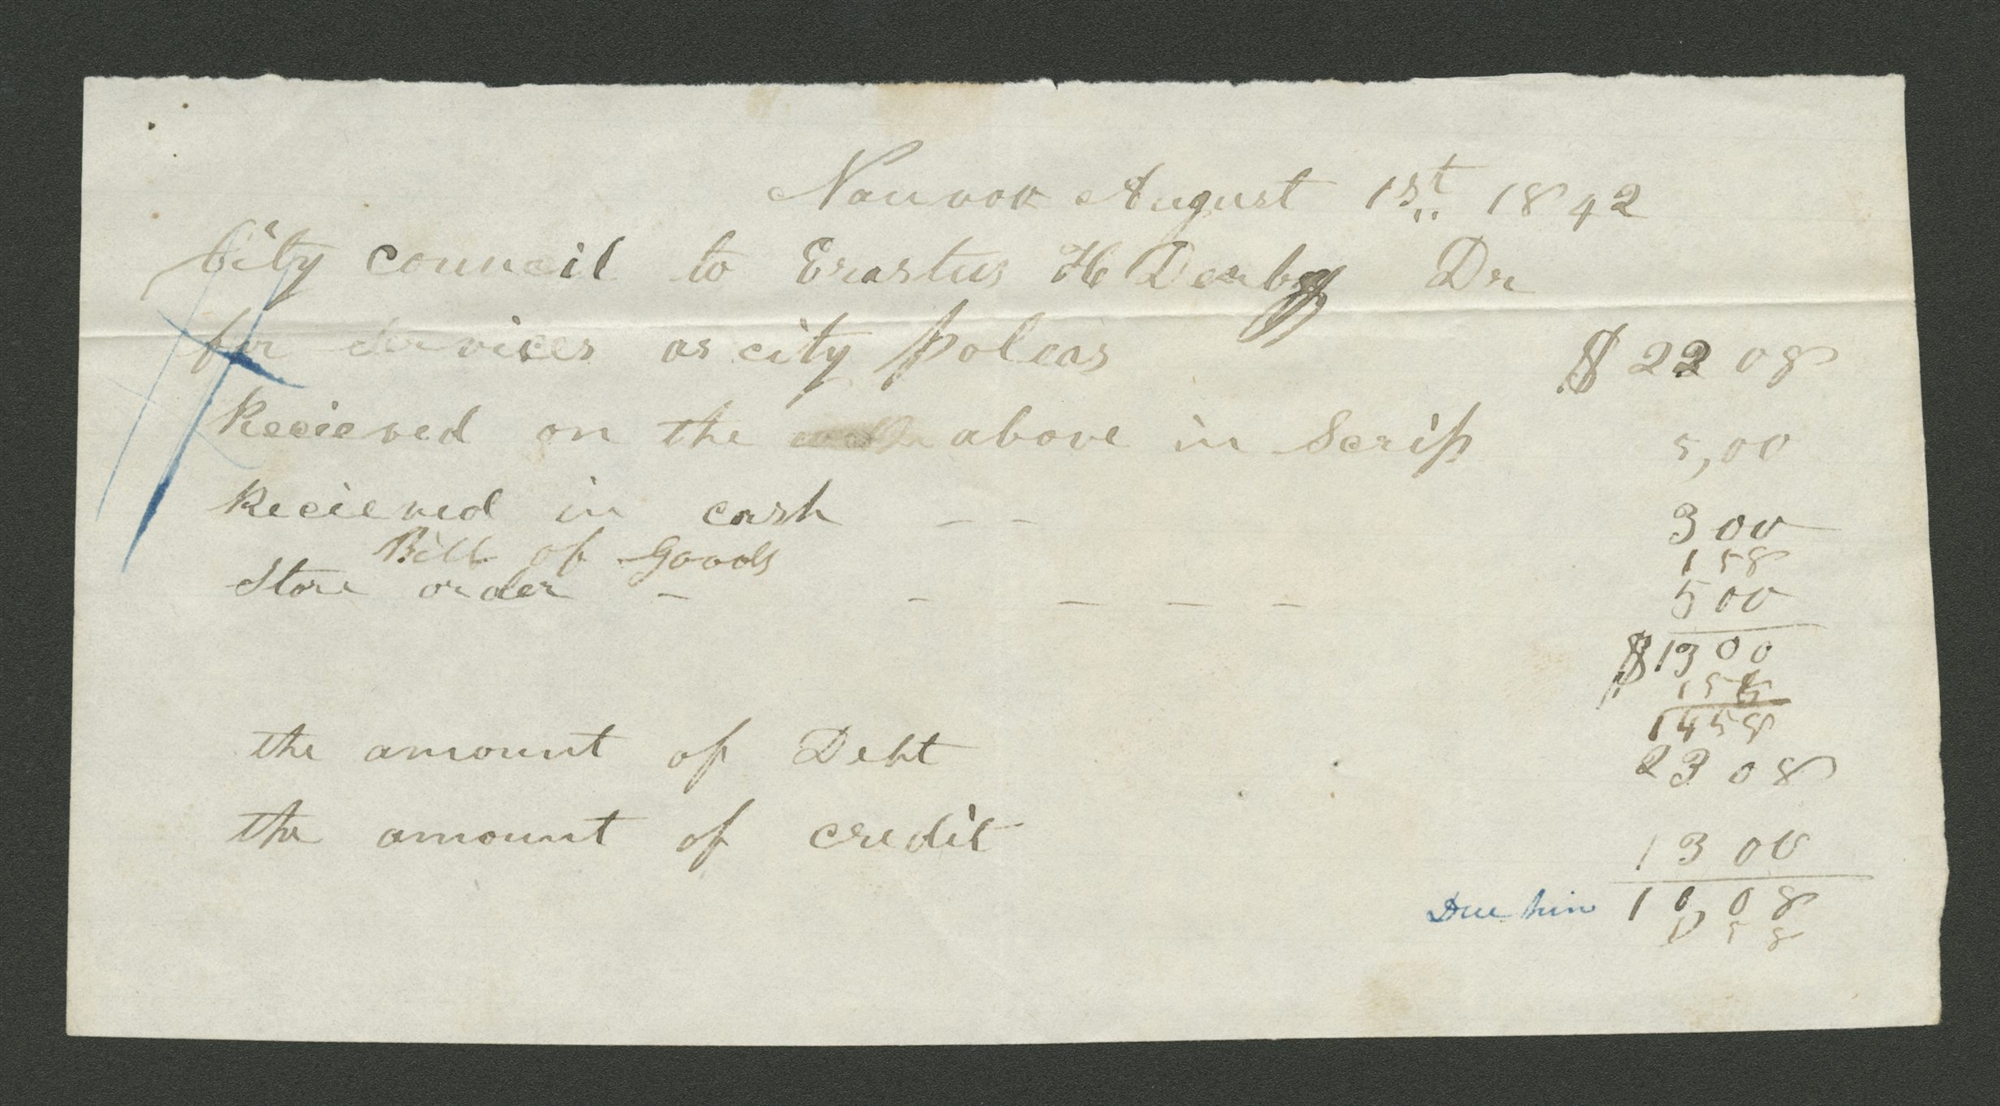 Nauvoo August 1st 1842
City council to Erastus H Derby Dr
for Services as city poleas $22 08
Recieved on the above in Scrip 5,00
Recieved in cash - - 3 00
Bill of Goods 1 58
Store order - - - - - 5 00
$13 00
1 58
14 58
the amount of Debt 23 08
the amount of credit 13 00
Due him 10 08
58